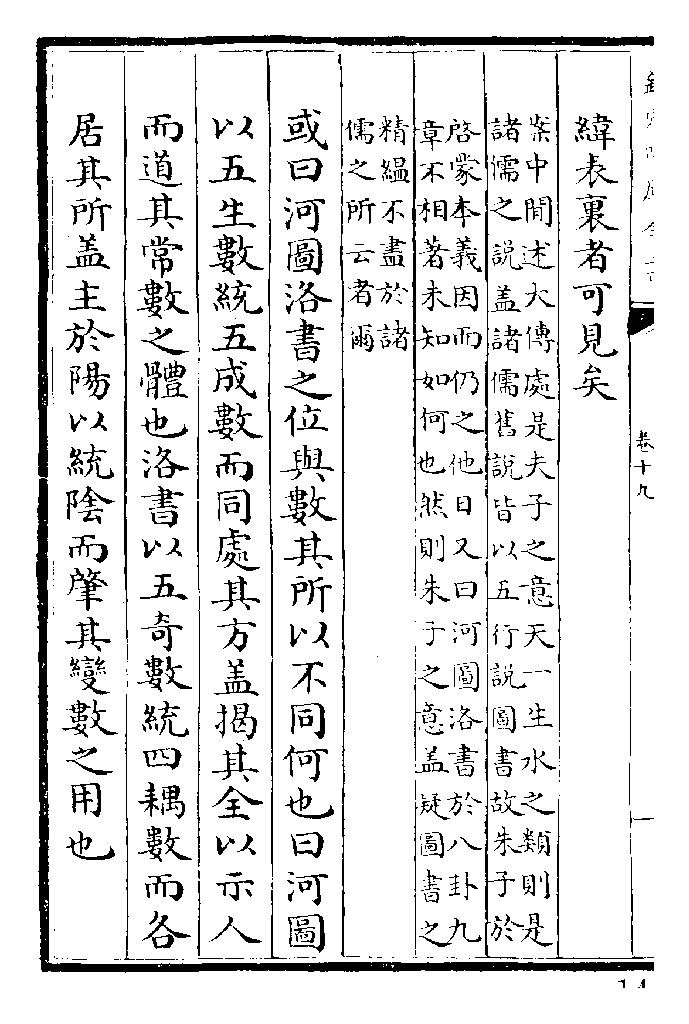 欽定四庫全書
卷十九
一
緯表裏者可見矣
案中間述大傳處是夫子之意天一生水之類則是
諸儒之說盖諸儒舊説皆以五行説圖書故朱子於
啓蒙本義因而仍之他日又曰河圖洛書於八卦九
章不相著未知如何也然則朱子之意盖疑圖書之
精緼不盡於諸
儒之所云者爾
或曰河圖洛書之位與數其所以不同何也曰河圖
以五生數統五成數而同處其方盖揭其全以示人
而道其常數之體也洛書以五奇數統四耦數而各
居其所盖主於陽以統陰而肇其變數之用也